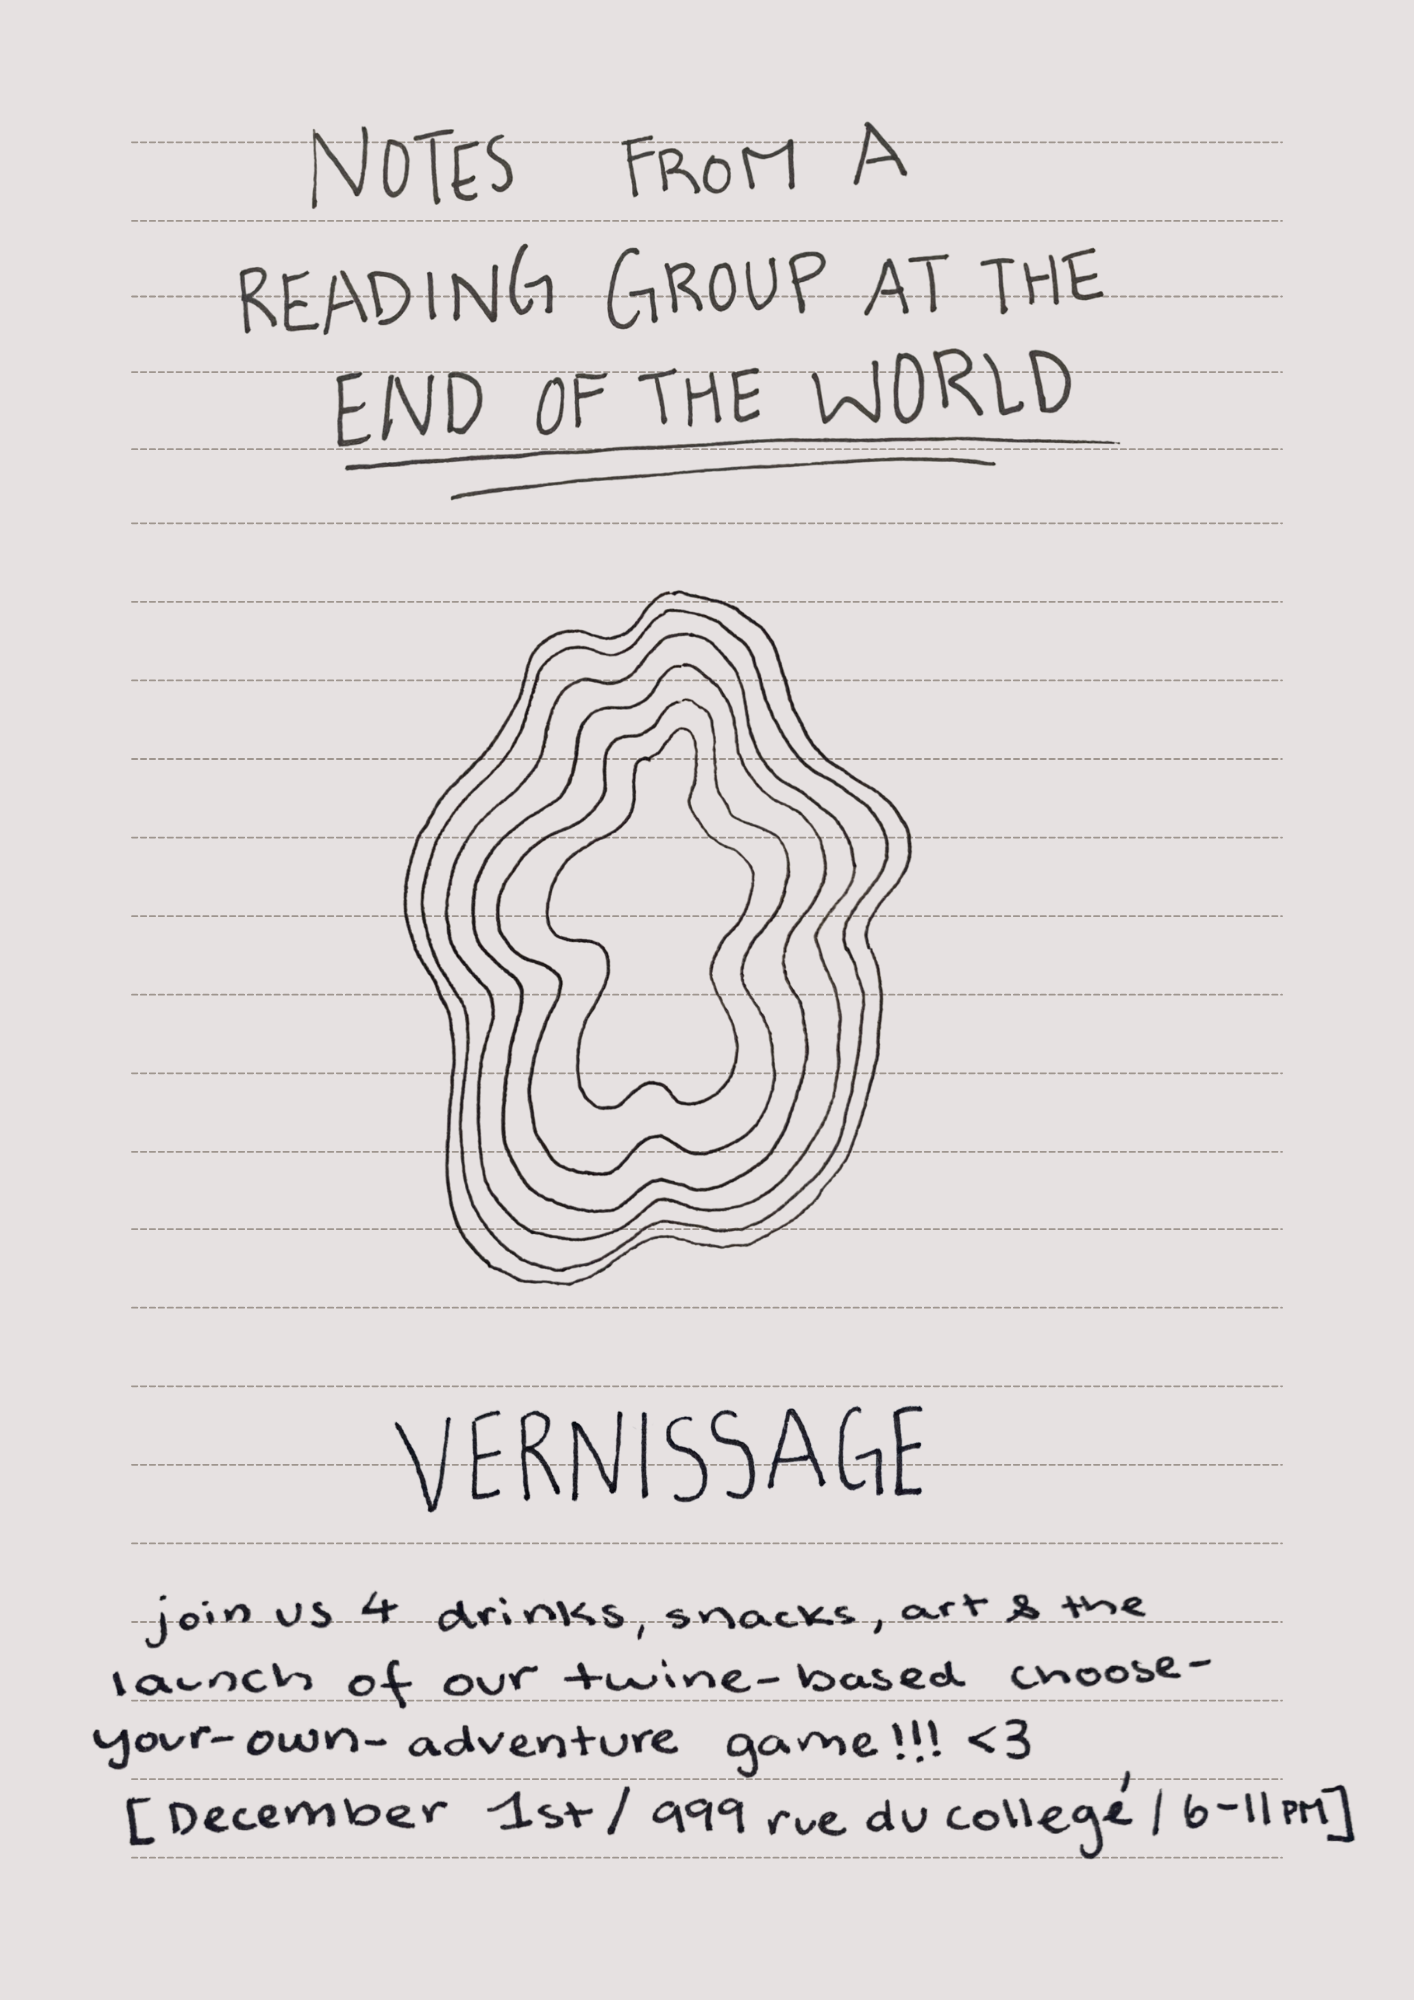 NOTES FROM A
READING GROUP AT THE
END OF THE WORLD
VERNISSAGE
join us 4 drinks, snacks, art & the
launch of our twine-based choose-
your-own-adventure game!!! <3
[December 1st / 999 rue du collegé / 6-11PM]